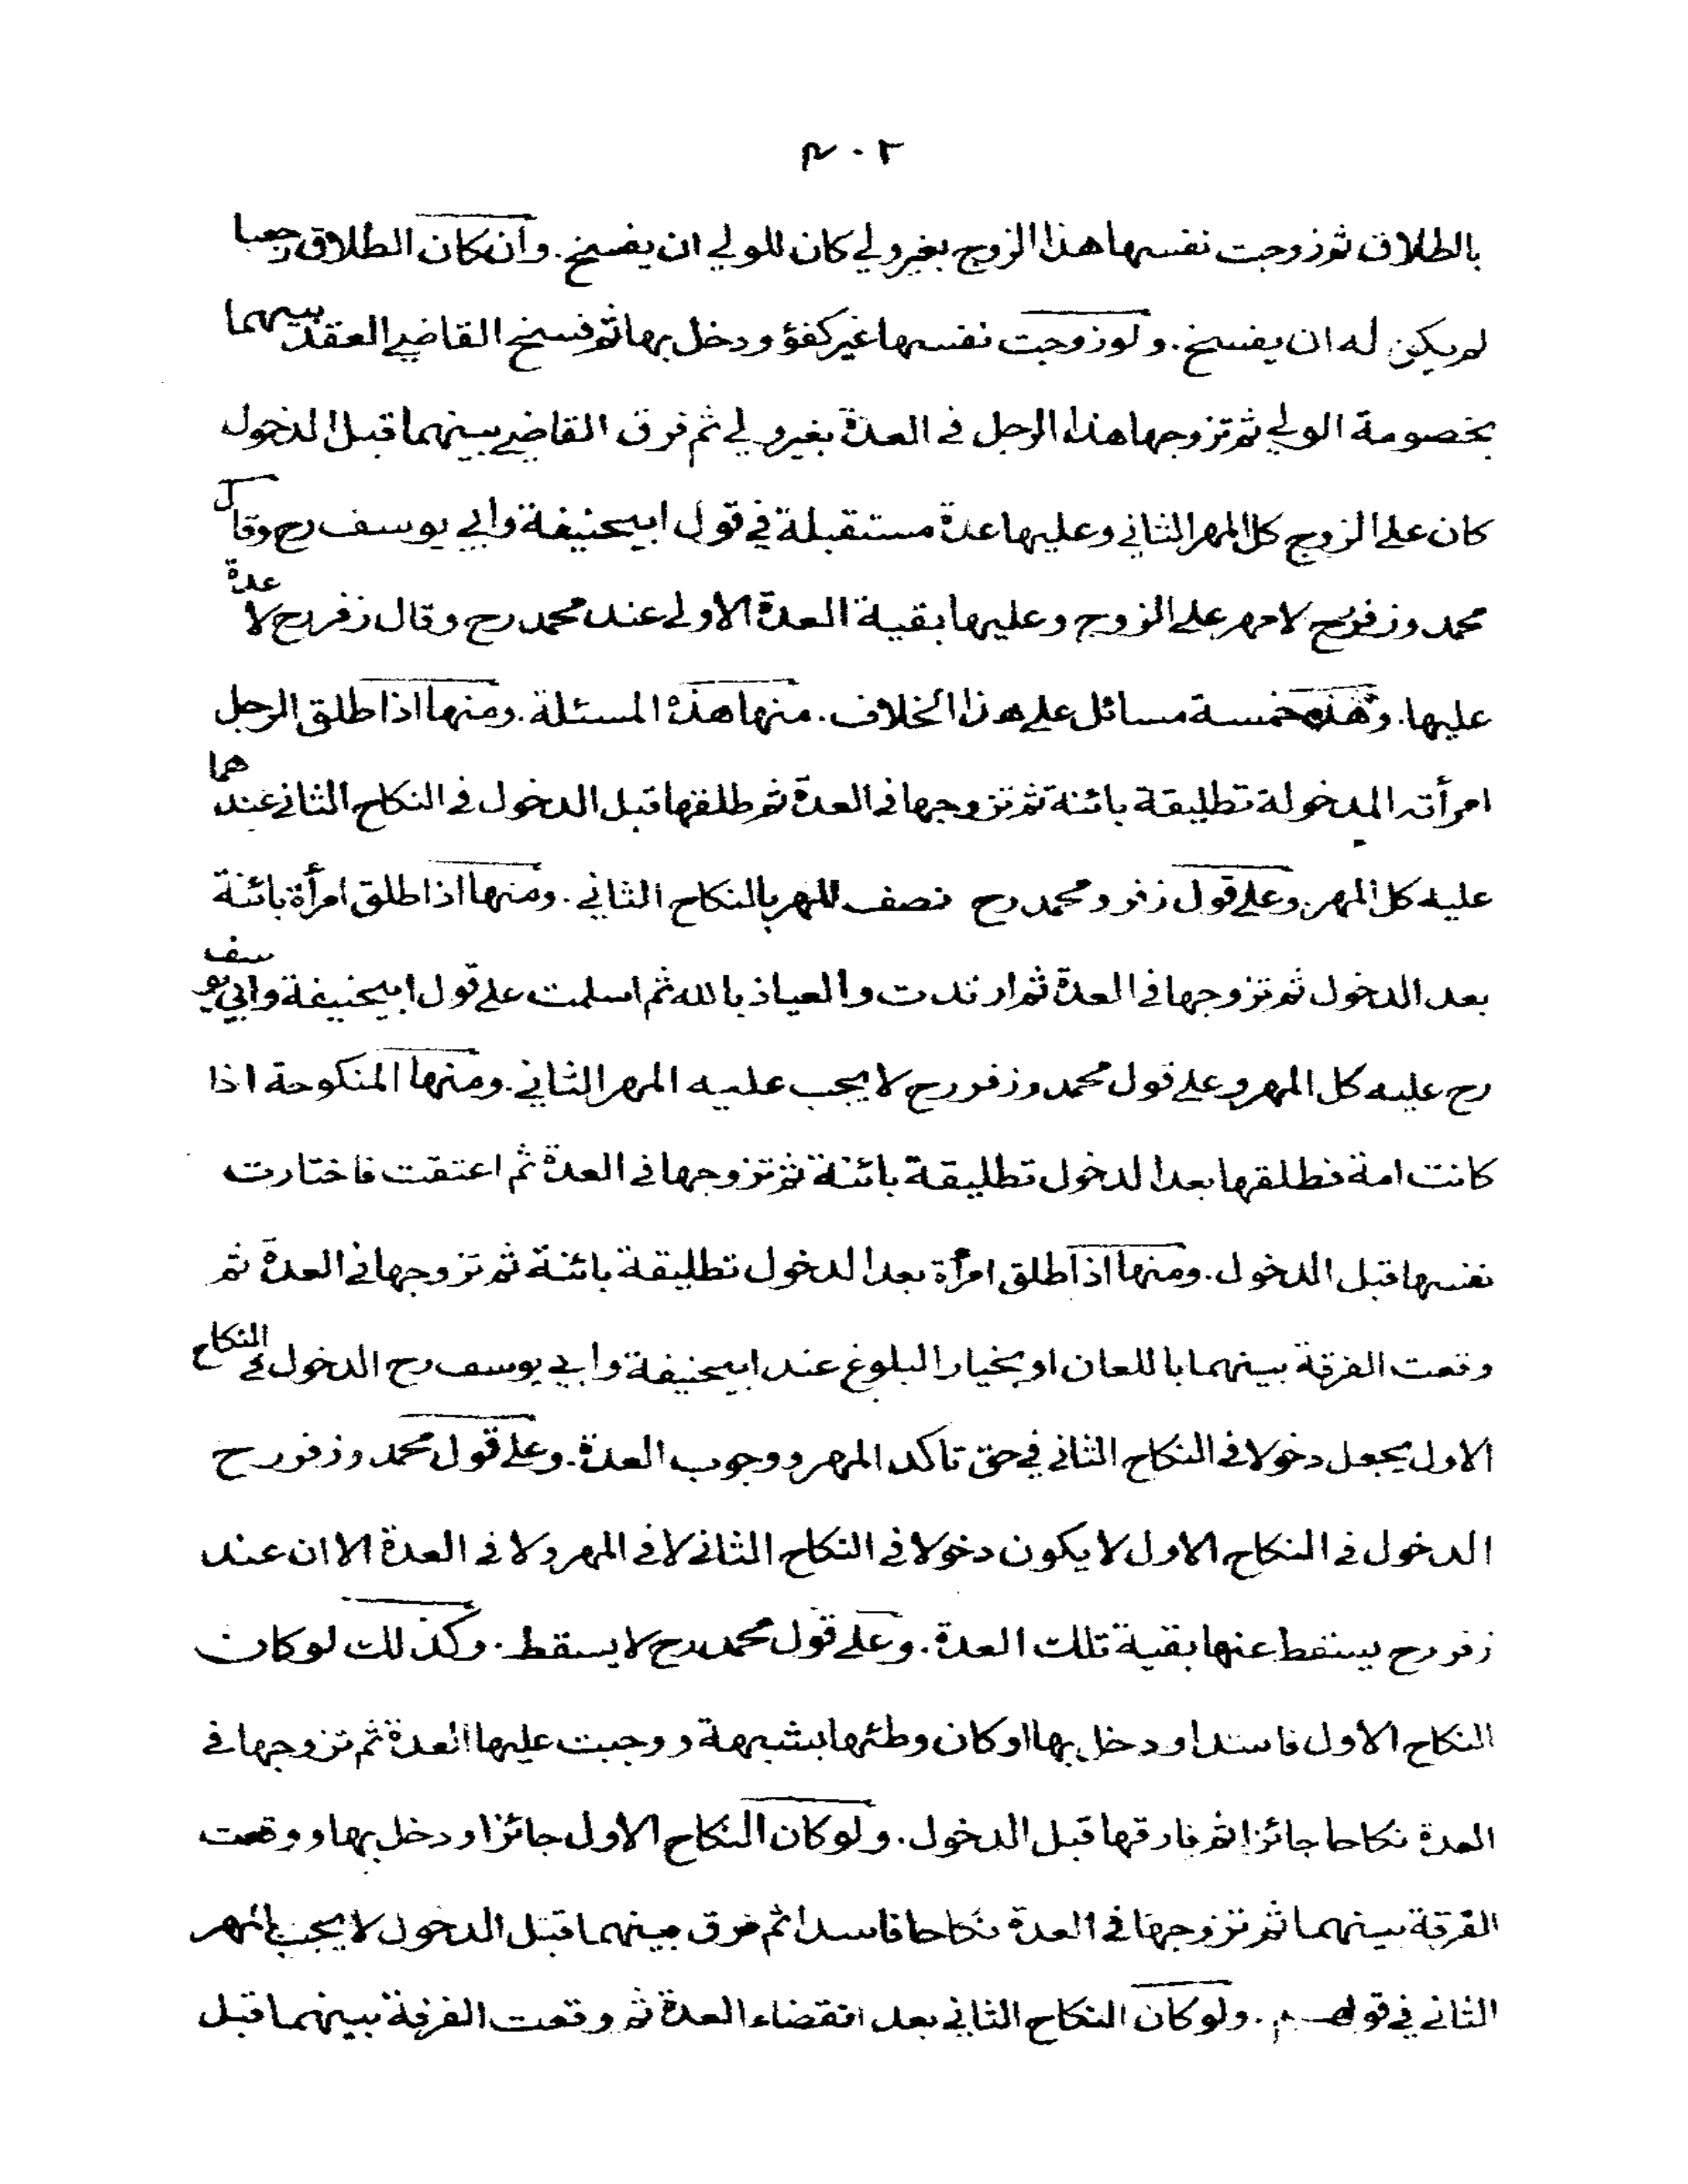 ٢٠٣
بالطلاق ثم زوجت نفسها هذا الزوج بغير ولي كان للولي ان يفسخ. وان كان الطلاق رجعيا
لم يكن له ان يفسخ. ولو زوجت نفسها غير كفؤ ودخل بها ثم فسخ القاضي العقد بينهما
بخصومة الولي ثم تزوجها هذا الرجل في العدة بغير ولي ثم فرق القاضي بينهما قبل الدخول
كان على الزوج كل المهر الثاني وعليها عدة مستقبلة في قول ابيحنيفة وابي يوسف رح وقال
محمد وزفر رح لا مهر على الزوج وعليها بقية العدة الاولى عند محمد رح وقال زفر رح لا عدة
عليها. وهذه خمسة مسائل على هذا الخلاف. منها هذه المسئلة. ومنها اذا طلق الرجل
امرأته المدخولة تطليقة بائنة ثم تزوجها في العدة ثم طلقها قبل الدخول في النكاح الثاني عندهما
عليه كل المهر. وعلى قول زفر ومحمد رح نصف المهر بالنكاح الثاني. ومنها اذا طلق امرأة بائنة
بعد الدخول ثم تزوجها في العدة ثم ارتدت والعياذ بالله ثم اسلمت على قول ابيحنيفة وابي يوسف
رح عليه كل المهر وعلى قول محمد وزفر رح لا يجب عليه المهر الثاني. ومنها المنكوحة اذا
كانت امة فطلقها بعد الدخول تطليقة بائنة ثم تزوجها في العدة ثم اعتقت فاختارت
نفسها قبل الدخول. ومنها اذا طلق امرأة بعد الدخول تطليقة بائنة ثم تزوجها في العدة ثم
وقعت الفرقة بينهما باللعان او بخيار البلوغ عند ابيحنيفة وابي يوسف رح الدخول في النكاح
الاول يجعل دخولا في النكاح الثاني في حق تاكد المهر ووجوب العدة. وعلى قول محمد وزفر رح
الدخول في النكاح الاول لا يكون دخولا في النكاح الثاني لا في المهر ولا في العدة الا ان عند
زفر رح يسقط عنها بقية تلك العدة. وعلى قول محمد رح لا يسقط. وكذلك لو كان
النكاح الاول فاسدا ودخل بها او كان وطئها بشبهة ووجبت عليها العدة ثم تزوجها في
العدة نكاحا جائزا ثم فارقها قبل الدخول. ولو كان النكاح الاول جائزا ودخل بها ووقعت
الفرقة بينهما ثم تزوجها في العدة نكاحا فاسدا ثم فرق بينهما قبل الدخول لا يجب المهر
الثاني في قولهم. ولو كان النكاح الثاني بعد انقضاء العدة ثم وقعت الفرقة بينهما قبل